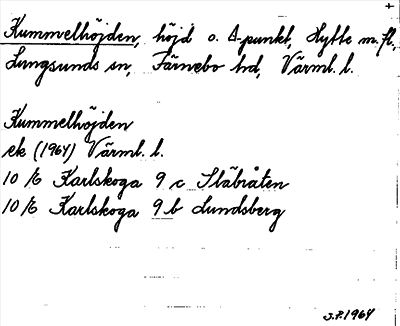 Kummelhöjden, höjd o. Δ-punkt, Hytte m. fl.,
Lungsunds sn, Färnebo hd, Värml. l.
Kummelhöjden
ek (1964) Värml. l.
10 /E Karlskoga 9 c Släbråten
10/E Karlskoga 9 b Lundsberg
J.P. 1964